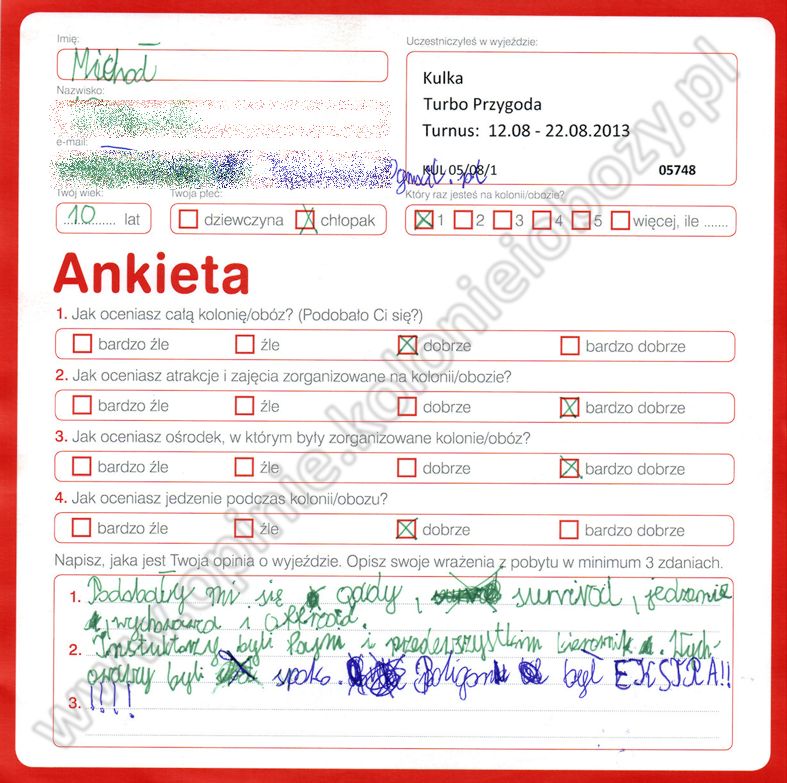 Imię:
Michał
Uczestniczyłeś w wyjeździe:
Kulka
Turbo Przygoda
Turnus: 12.08 - 22.08.2013
KUL 05/08/1 05748
Nazwisko:
e-mail:
@gmail.pl
Twój wiek:
10 lat
Twoja płeć:
dziewczyna chłopak
Który raz jesteś na kolonii/obozie?
1 2 3 4 5 więcej, ile .......
Ankieta
1. Jak oceniasz całą kolonię/obóz? (Podobało Ci się?)
bardzo źle źle dobrze bardzo dobrze
2. Jak oceniasz atrakcje i zajęcia zorganizowane na kolonii/obozie?
bardzo źle źle dobrze bardzo dobrze
3. Jak oceniasz ośrodek, w którym były zorganizowane kolonie/obóz?
bardzo źle źle dobrze bardzo dobrze
4. Jak oceniasz jedzenie podczas kolonii/obozu?
bardzo źle źle dobrze bardzo dobrze
Napisz, jaka jest Twoja opinia o wyjeździe. Opisz swoje wrażenia z pobytu w minimum 3 zdaniach.
1. Podobały mi się gady, survival, jedzenie
, wychowawca i
2. byli fajni i przedewszystkim kierownik. Wych-
owawcy byli spoko. Poligon był EKSTRA!!
3. !!!!
www.opinie.kolonieiobozy.pl